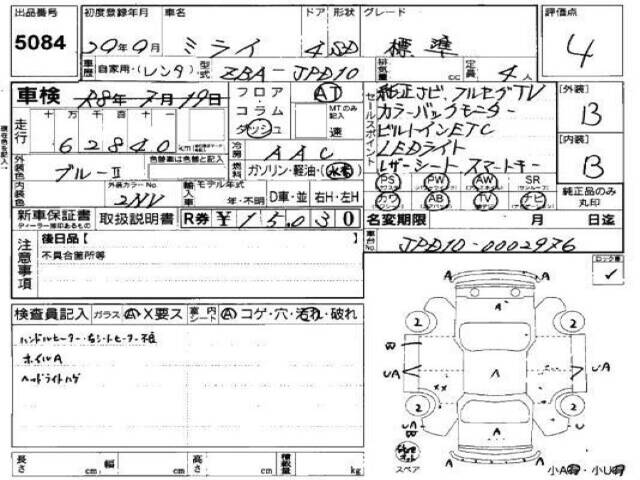 出品番号 初度登録年月 車名 ドア 形状 グレード 評価点
5084 29年9月 ミライ 4SD 標準 4
車歴 自家用・(レンタ) 型式 ZBA-JPD10 排気量 cc 定員 4人
車検 R8年7月19日 フロア AT
コラム MTのみ記入
ダッシュ 速
走行 十万 万 千 百 十
62840 km
セールスポイント
純正ナビ、フルセグTV
カラーバックモニター
ビルトインETC
LEDライト
レザーシート スマートキー
[外装] B
[内装] B
現在色を記入
外装色 ブルーII 色替車は色替と記入
冷房 AAC
燃料 ガソリン・軽油・(水素)
内装色 外装カラーNo. 2NV
輸入車 モデル年式 年・不明 D車・並 右H・左H
PS PW AW SR
カワ AB TV ナビ
純正品のみ丸印
新車保証書 取扱説明書 R券 ¥15,030
ディーラー捺印あるもの
名変期限 月 日迄
車台No. JPD10-0002976
注意事項 後日品【
不具合箇所等
ロック番 ✓
検査員記入 ガラス Ⓐ X要ス 室内シート Ⓐ コゲ・穴・汚れ・破れ
ハンドルヒーター・右シートヒーター不良
ホイルA
ヘッドライトハゲ
A A
A
2 2
UA A UA
××
2 2
U
A
A A
スペア
小A有・小U有
長さ cm 幅 cm 高さ cm 積載量 kg